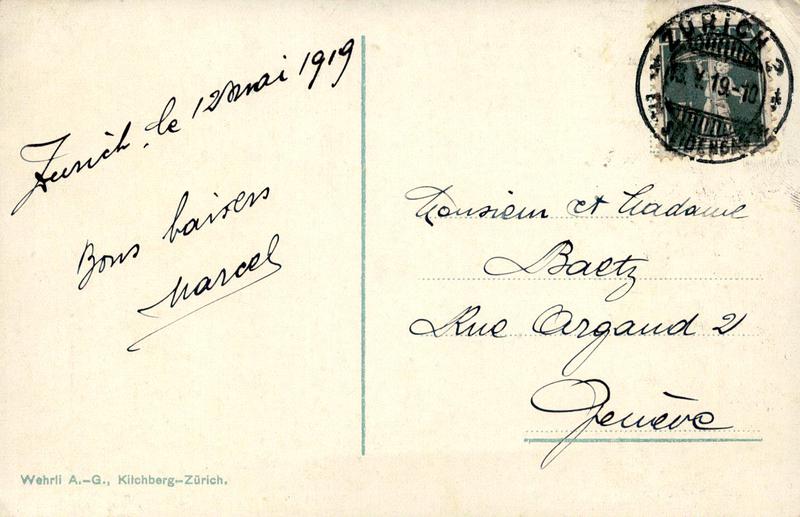 Zurich, le 12 mai 1919
Bons baisers
Marcel
Wehrli A.-G., Kilchberg-Zürich.
ZÜRICH 2
13.V.19.-10
Monsieur et Madame
Baetz
Rue Argand 2
Genève